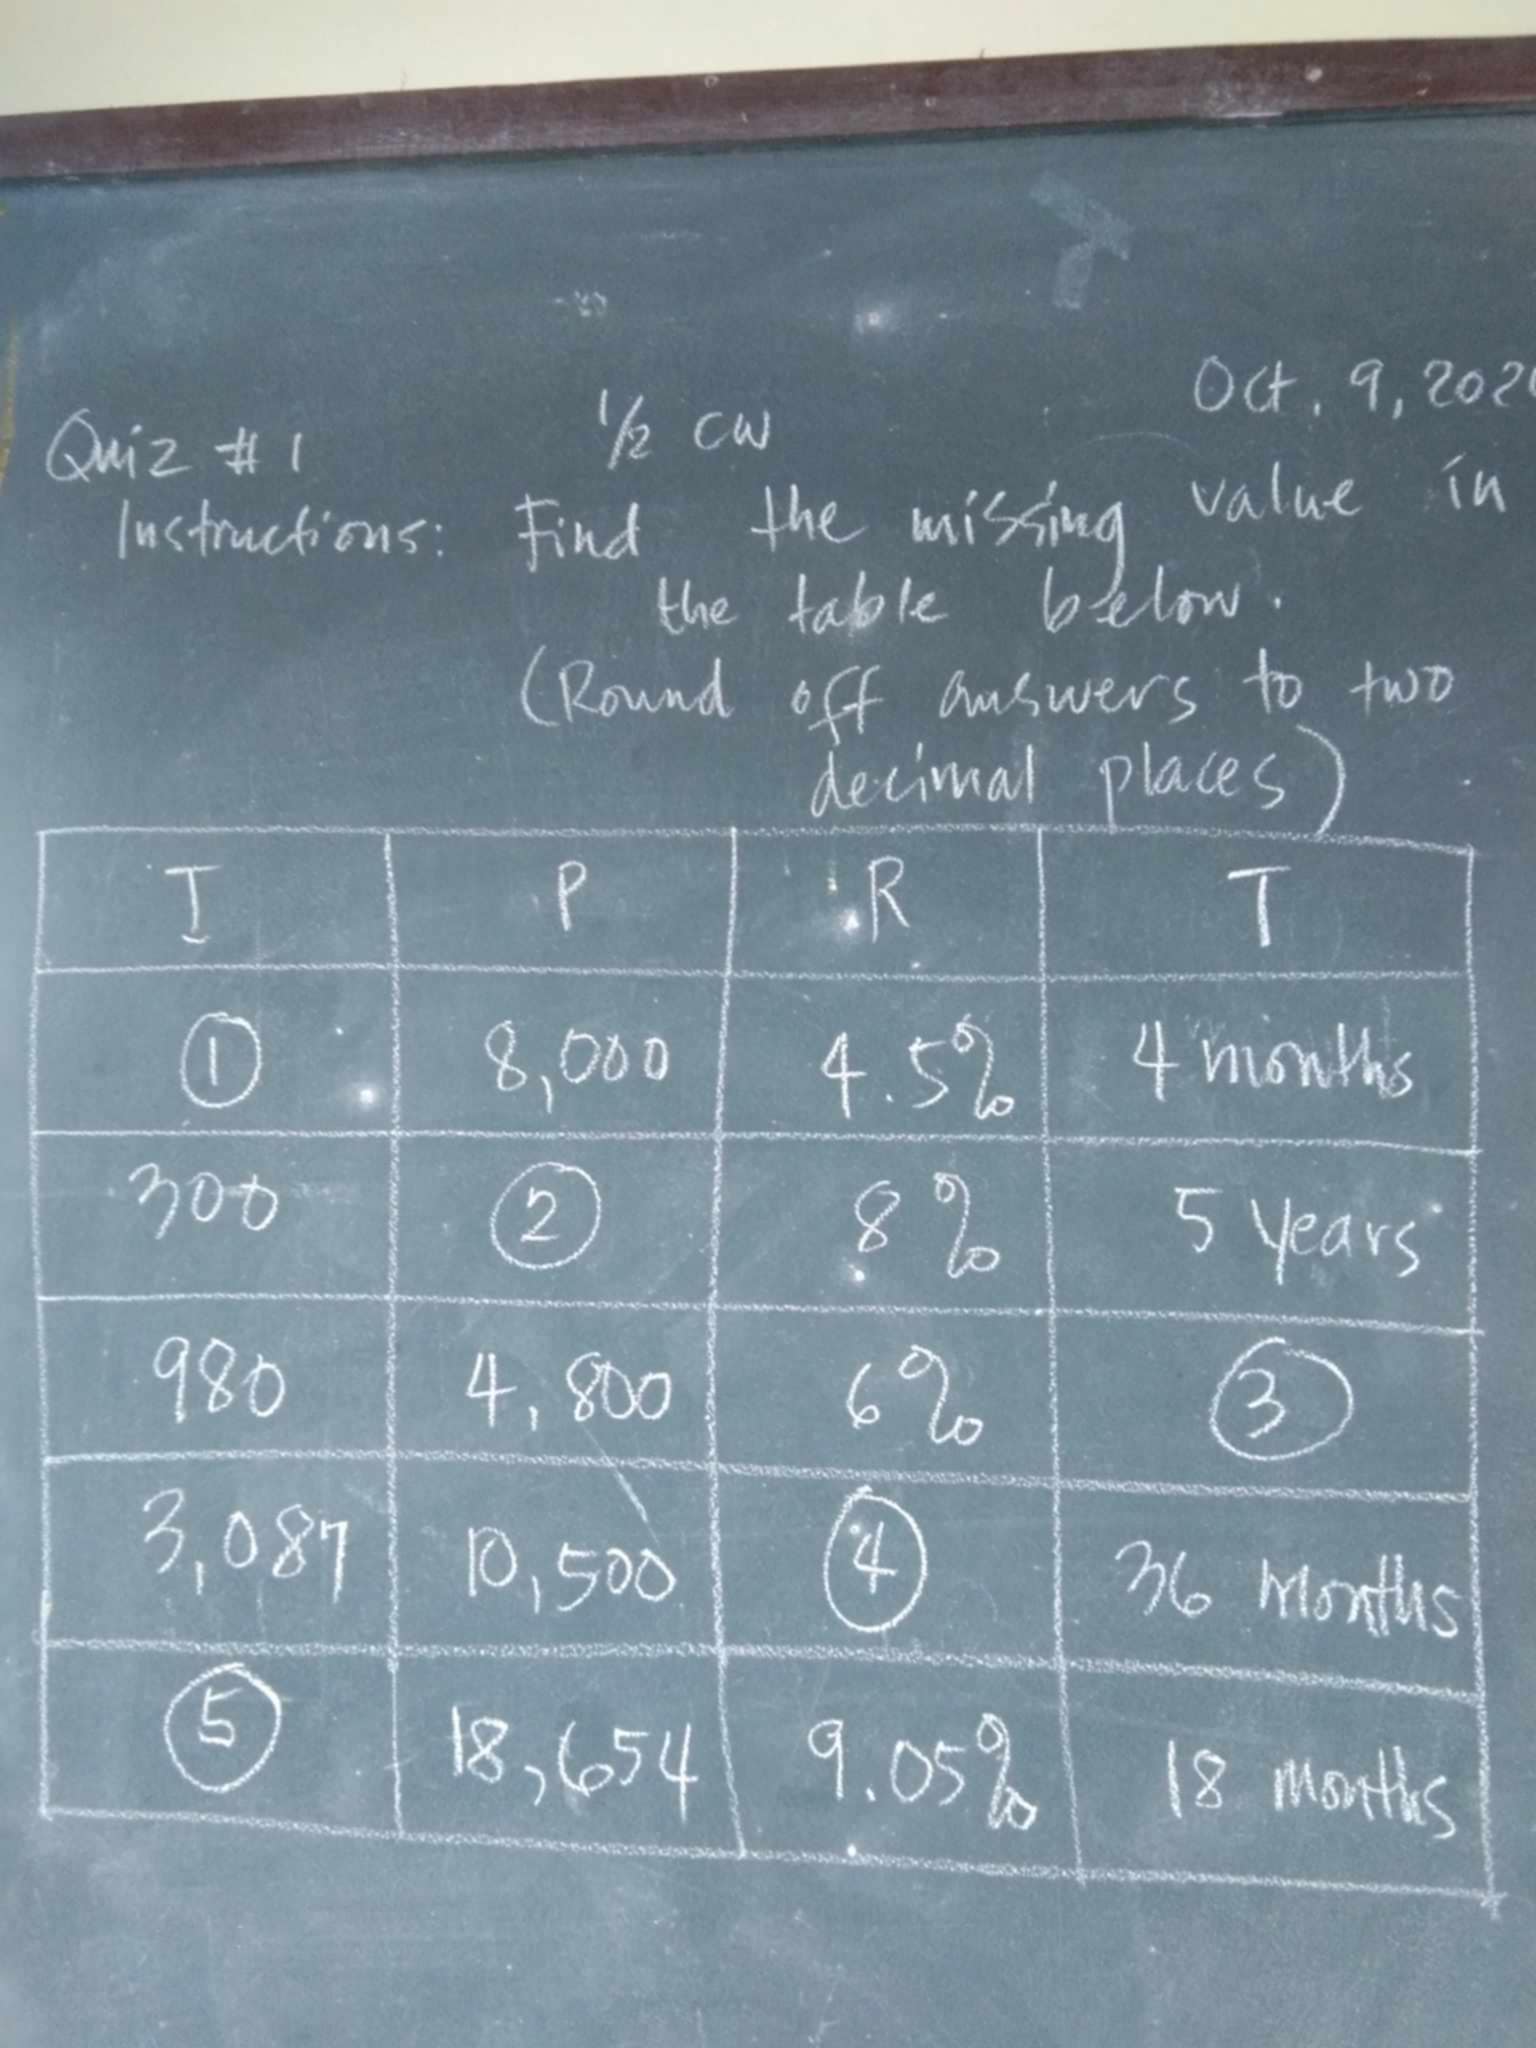 Oct. 9, 202
Quiz #1 1/2 CW
Instructions: Find the missing value in
the table below.
(Round off answers to two
decimal places)
I P R T
1 8,000 4.5% 4 months
300 2 8% 5 years
980 4,800 6% 3
3,087 10,500 4 36 months
5 18,654 9.05% 18 months